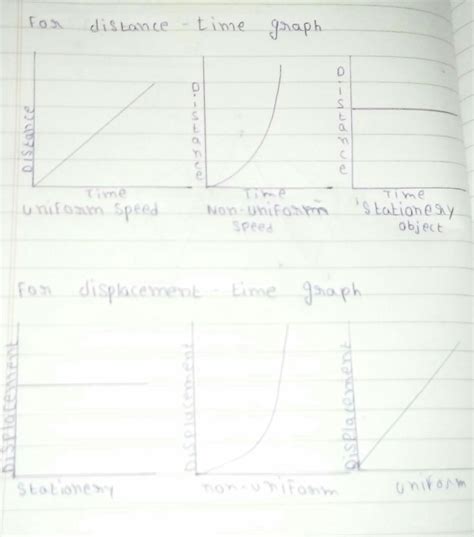 For distance - time graph
Distance
Distance
Distance
Time
Time
Time
uniform speed
Non-uniform
speed
Stationery
object
For displacement - time graph
Displacement
Displacement
Displacement
Stationery
non-uniform
uniform